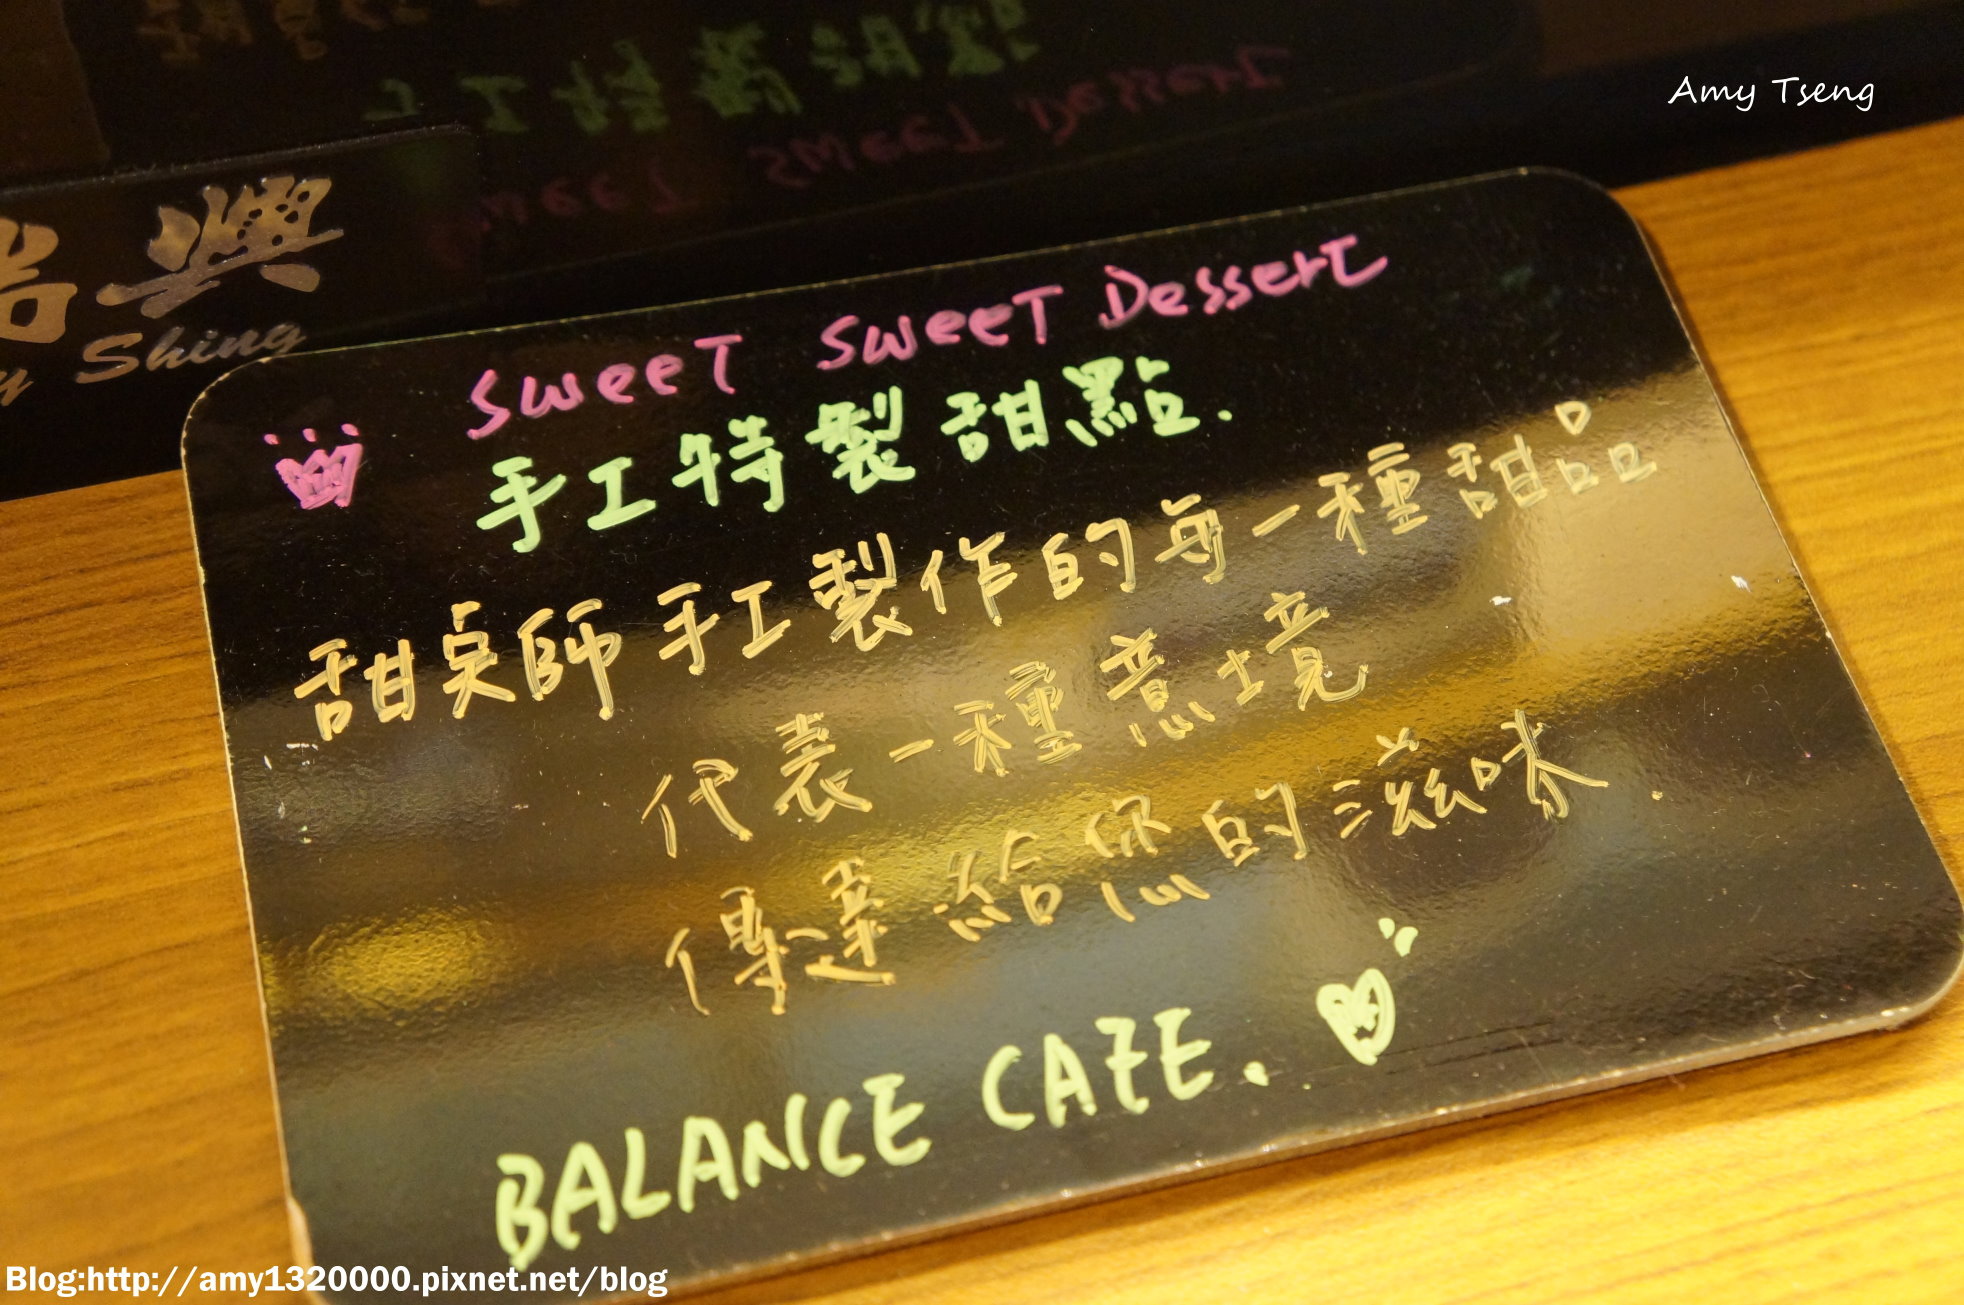 Amy Tseng
興
Shing
Sweet Sweet Dessert
手工特製甜點.
甜點師手工製作的每一種甜品
代表一種意境
傳達給您的滋味.
BALANCE CAFE.
Blog:http://amy1320000.pixnet.net/blog